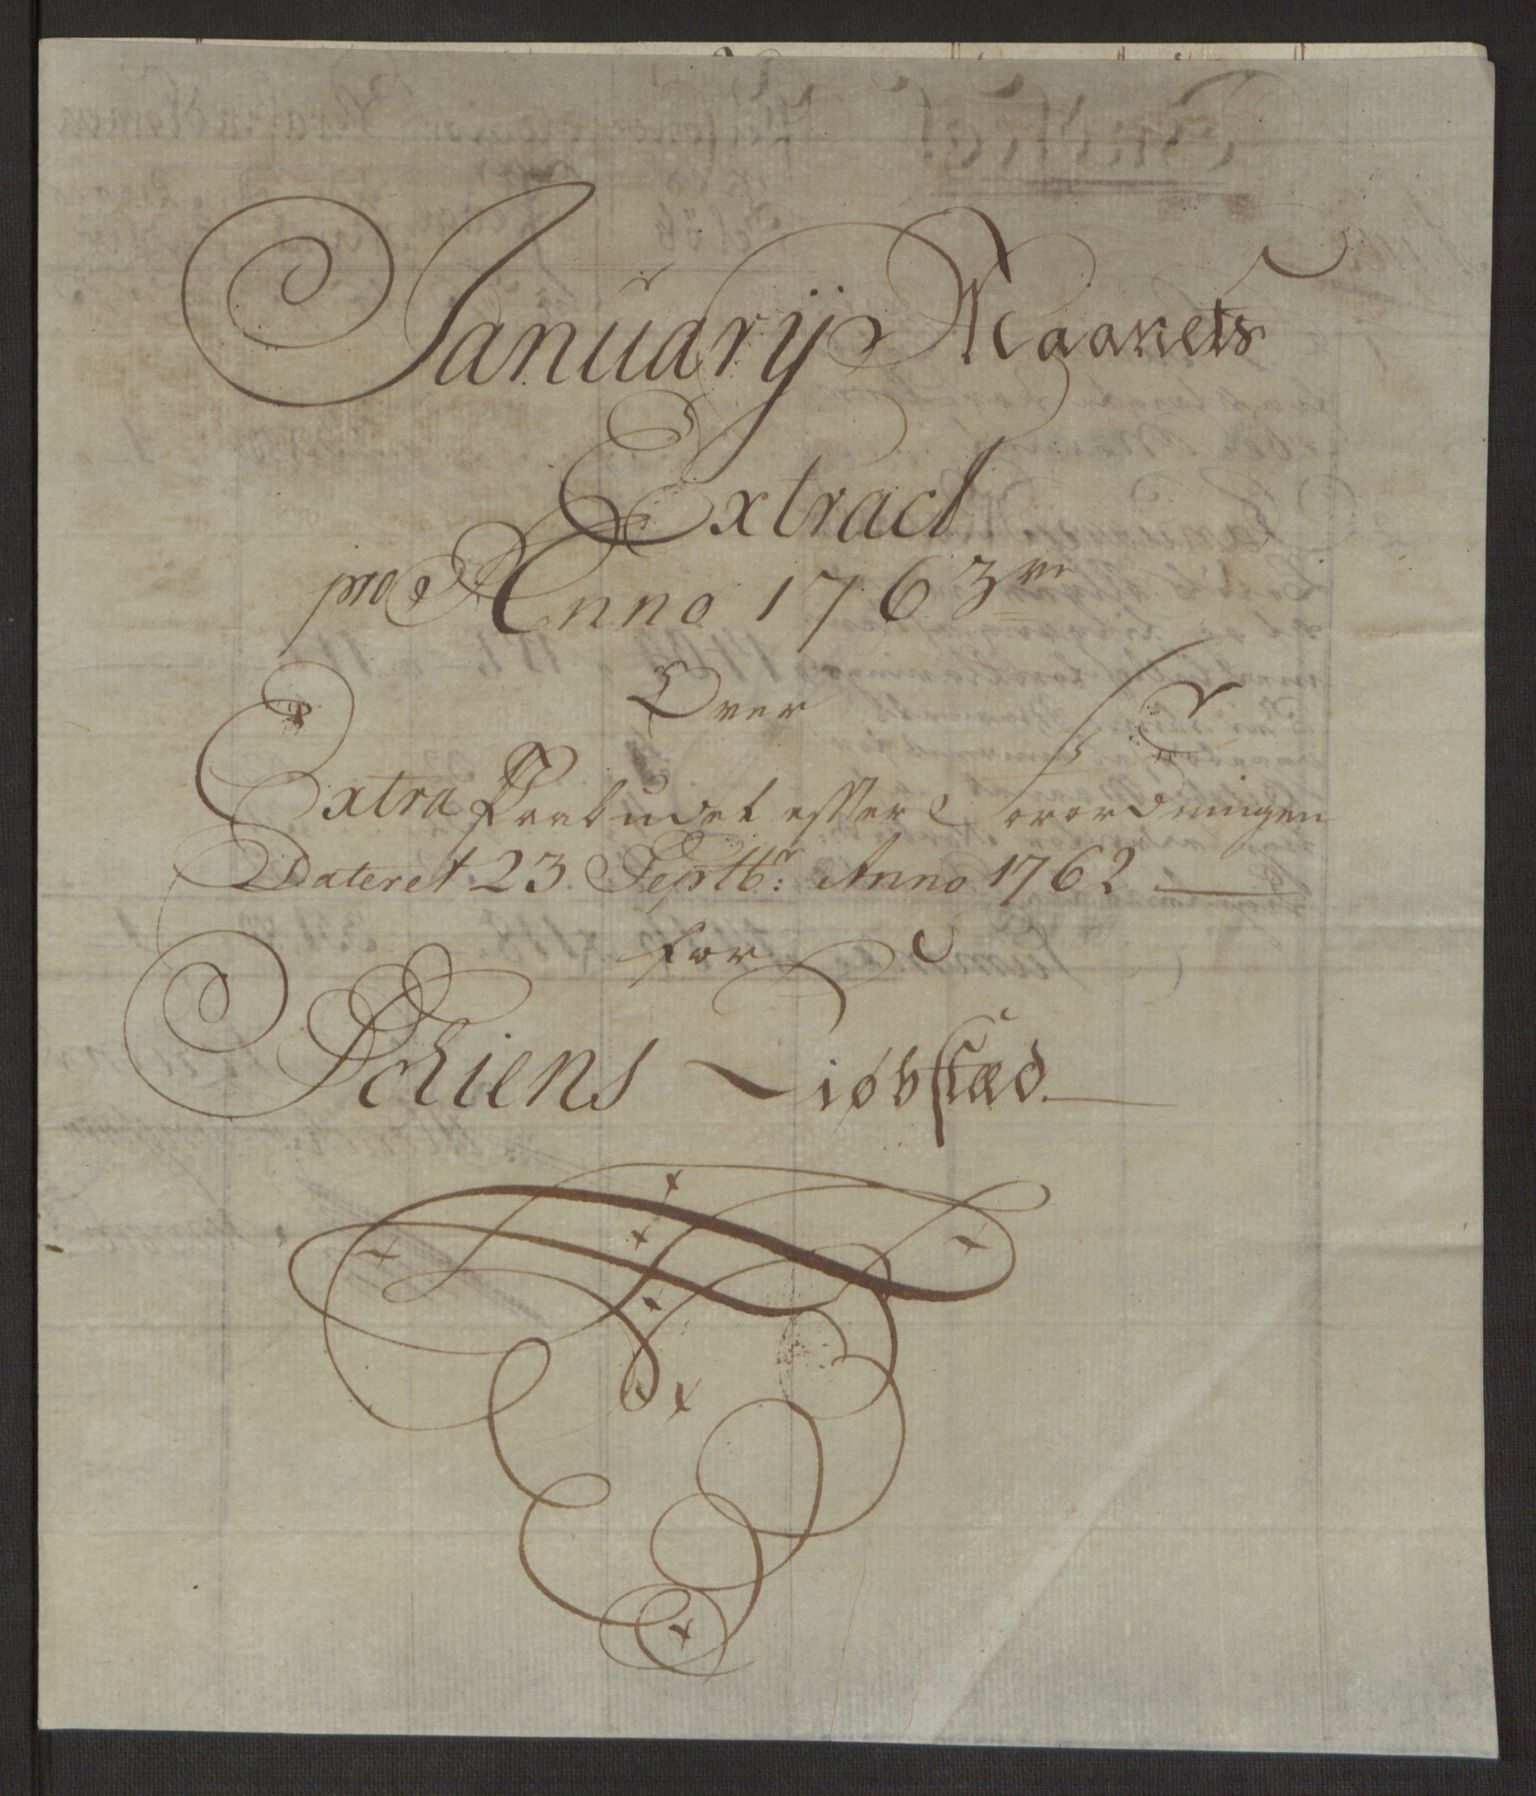 Januarij Maanets
Extract
pro Anno 1763
Over
Extra Paabudet efter Forordningen
Dateret 23 Septbr: Anno 1762
for
Schiens Kiøbstæd